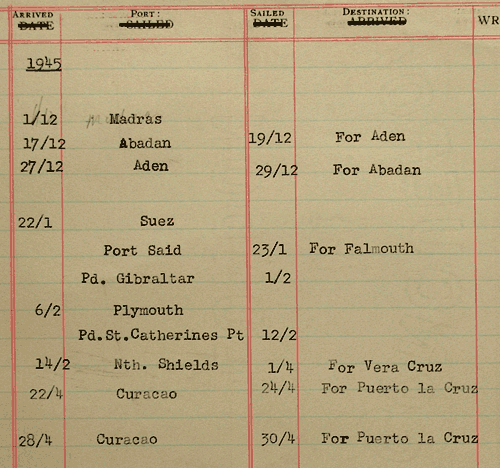 ARRIVED PORT: SAILED DESTINATION:
DATE SAILED DATE ARRIVED WR
1945
1/12 Madras
17/12 Abadan 19/12 For Aden
27/12 Aden 29/12 For Abadan
22/1 Suez
Port Said 23/1 For Falmouth
Pd. Gibraltar 1/2
6/2 Plymouth
Pd.St.Catherines Pt 12/2
14/2 Nth. Shields 1/4 For Vera Cruz
22/4 Curacao 24/4 For Puerto la Cruz
28/4 Curacao 30/4 For Puerto la Cruz